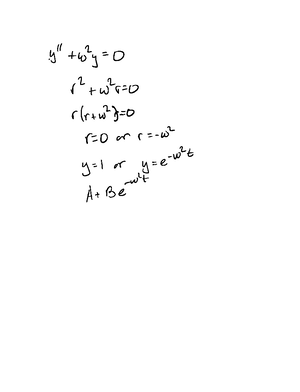 y'' + ω²y = 0
r² + ω²r = 0
r(r+ω²) = 0
r=0 or r=-ω²
y=1 or y=e^{-ω²t}
A+Be^{-ω²t}